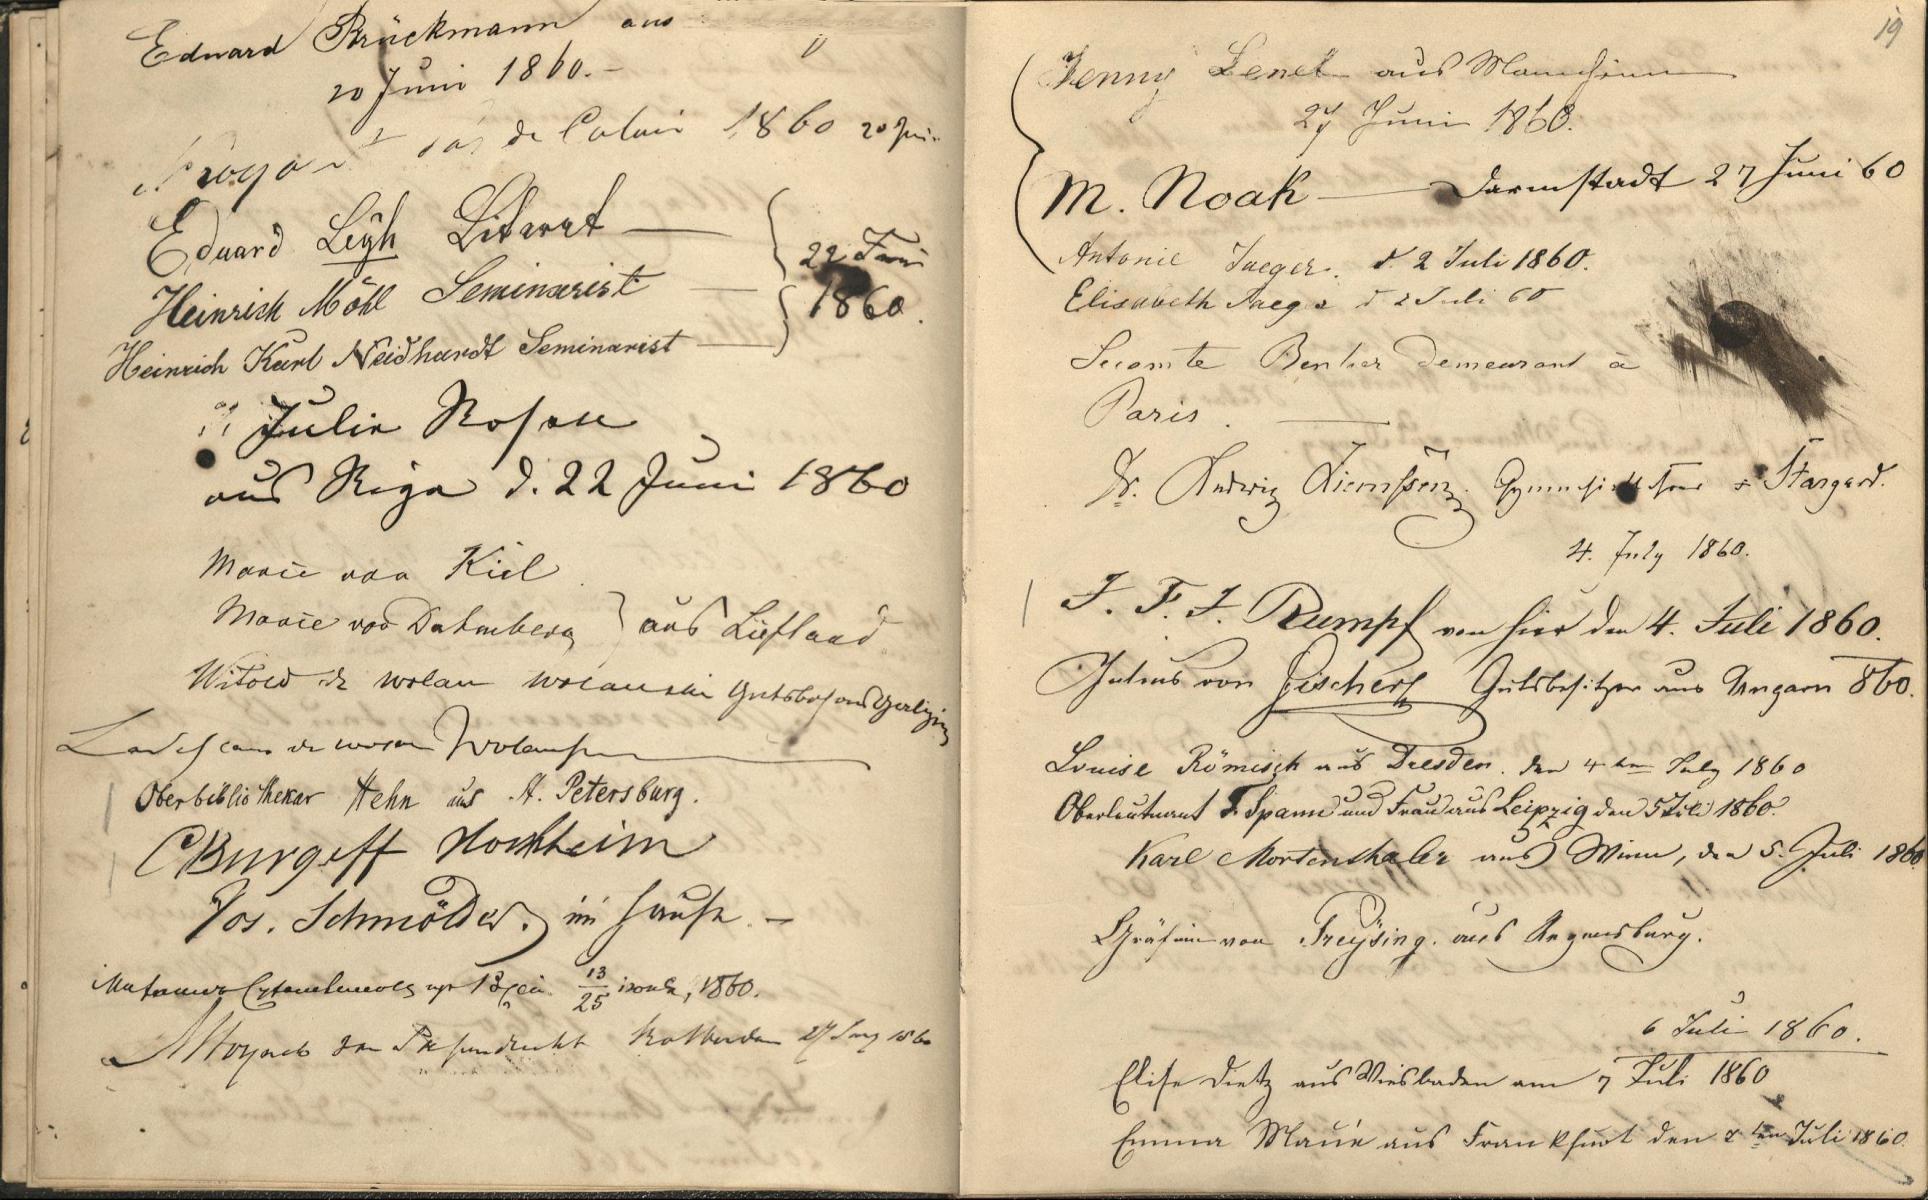 Eduard Brückmann aus
20 Juni 1860.-
de Calais 1860 20 Juin
Eduard Leyh Literat
22 Juni
Heinrich Möhl Seminarist
1860.
Heinrich Karl Neidhardt Seminarist
Julie Rosen
aus Riga d. 22 Juni 1860
Marie von Kiel
Marie von aus Liefland
Witold de wolan
de Wolansky
Oberbibliothekar Hehn aus St. Petersburg.
C Burgeff Hochheim
Jos. Schmölder. im Hause. -
13/25 1860.
27 1860
19
Jenny Lenel aus Mannheim
27 Juni 1860.
M. Noak Darmstadt 27 Juni 60
Antonie Jaeger. d. 2 Juli 1860.
Elisabeth Jaeger d 2 Juli 60
Lecomte Rentier demeurant a
Paris.
Dr. Ludwig Ziemssen. Stargard.
4. July 1860.
J. F. J. Rumpf von hier den 4. Juli 1860.
Julius von Gutsbesitzer aus Ungarn 860.
Louise Römisch aus Dresden. den 4ten July 1860
Oberleutnant F. Spann und Frau aus Leipzig den 5 Juli 1860.
Karl Mortenthaler aus Wien, den 5. Juli 1860
Gräfin von Preÿsing. aus Regensburg.
6 Juli 1860.
Elise Dietz aus Wiesbaden am 7 Juli 1860
Emma aus Frankfurt den 7ten Juli 1860